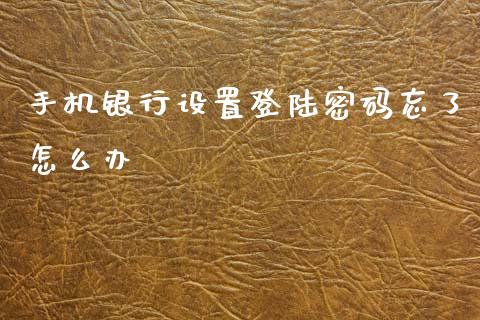 手机银行设置登陆密码忘了
怎么办